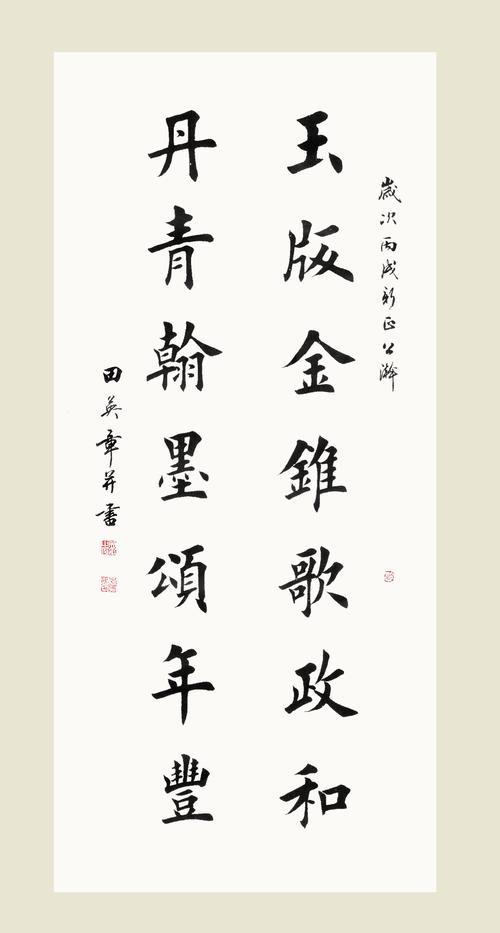 歲次丙戌新正公瀚
玉版金錐歌政和
丹青翰墨頌年豐
田英章并書